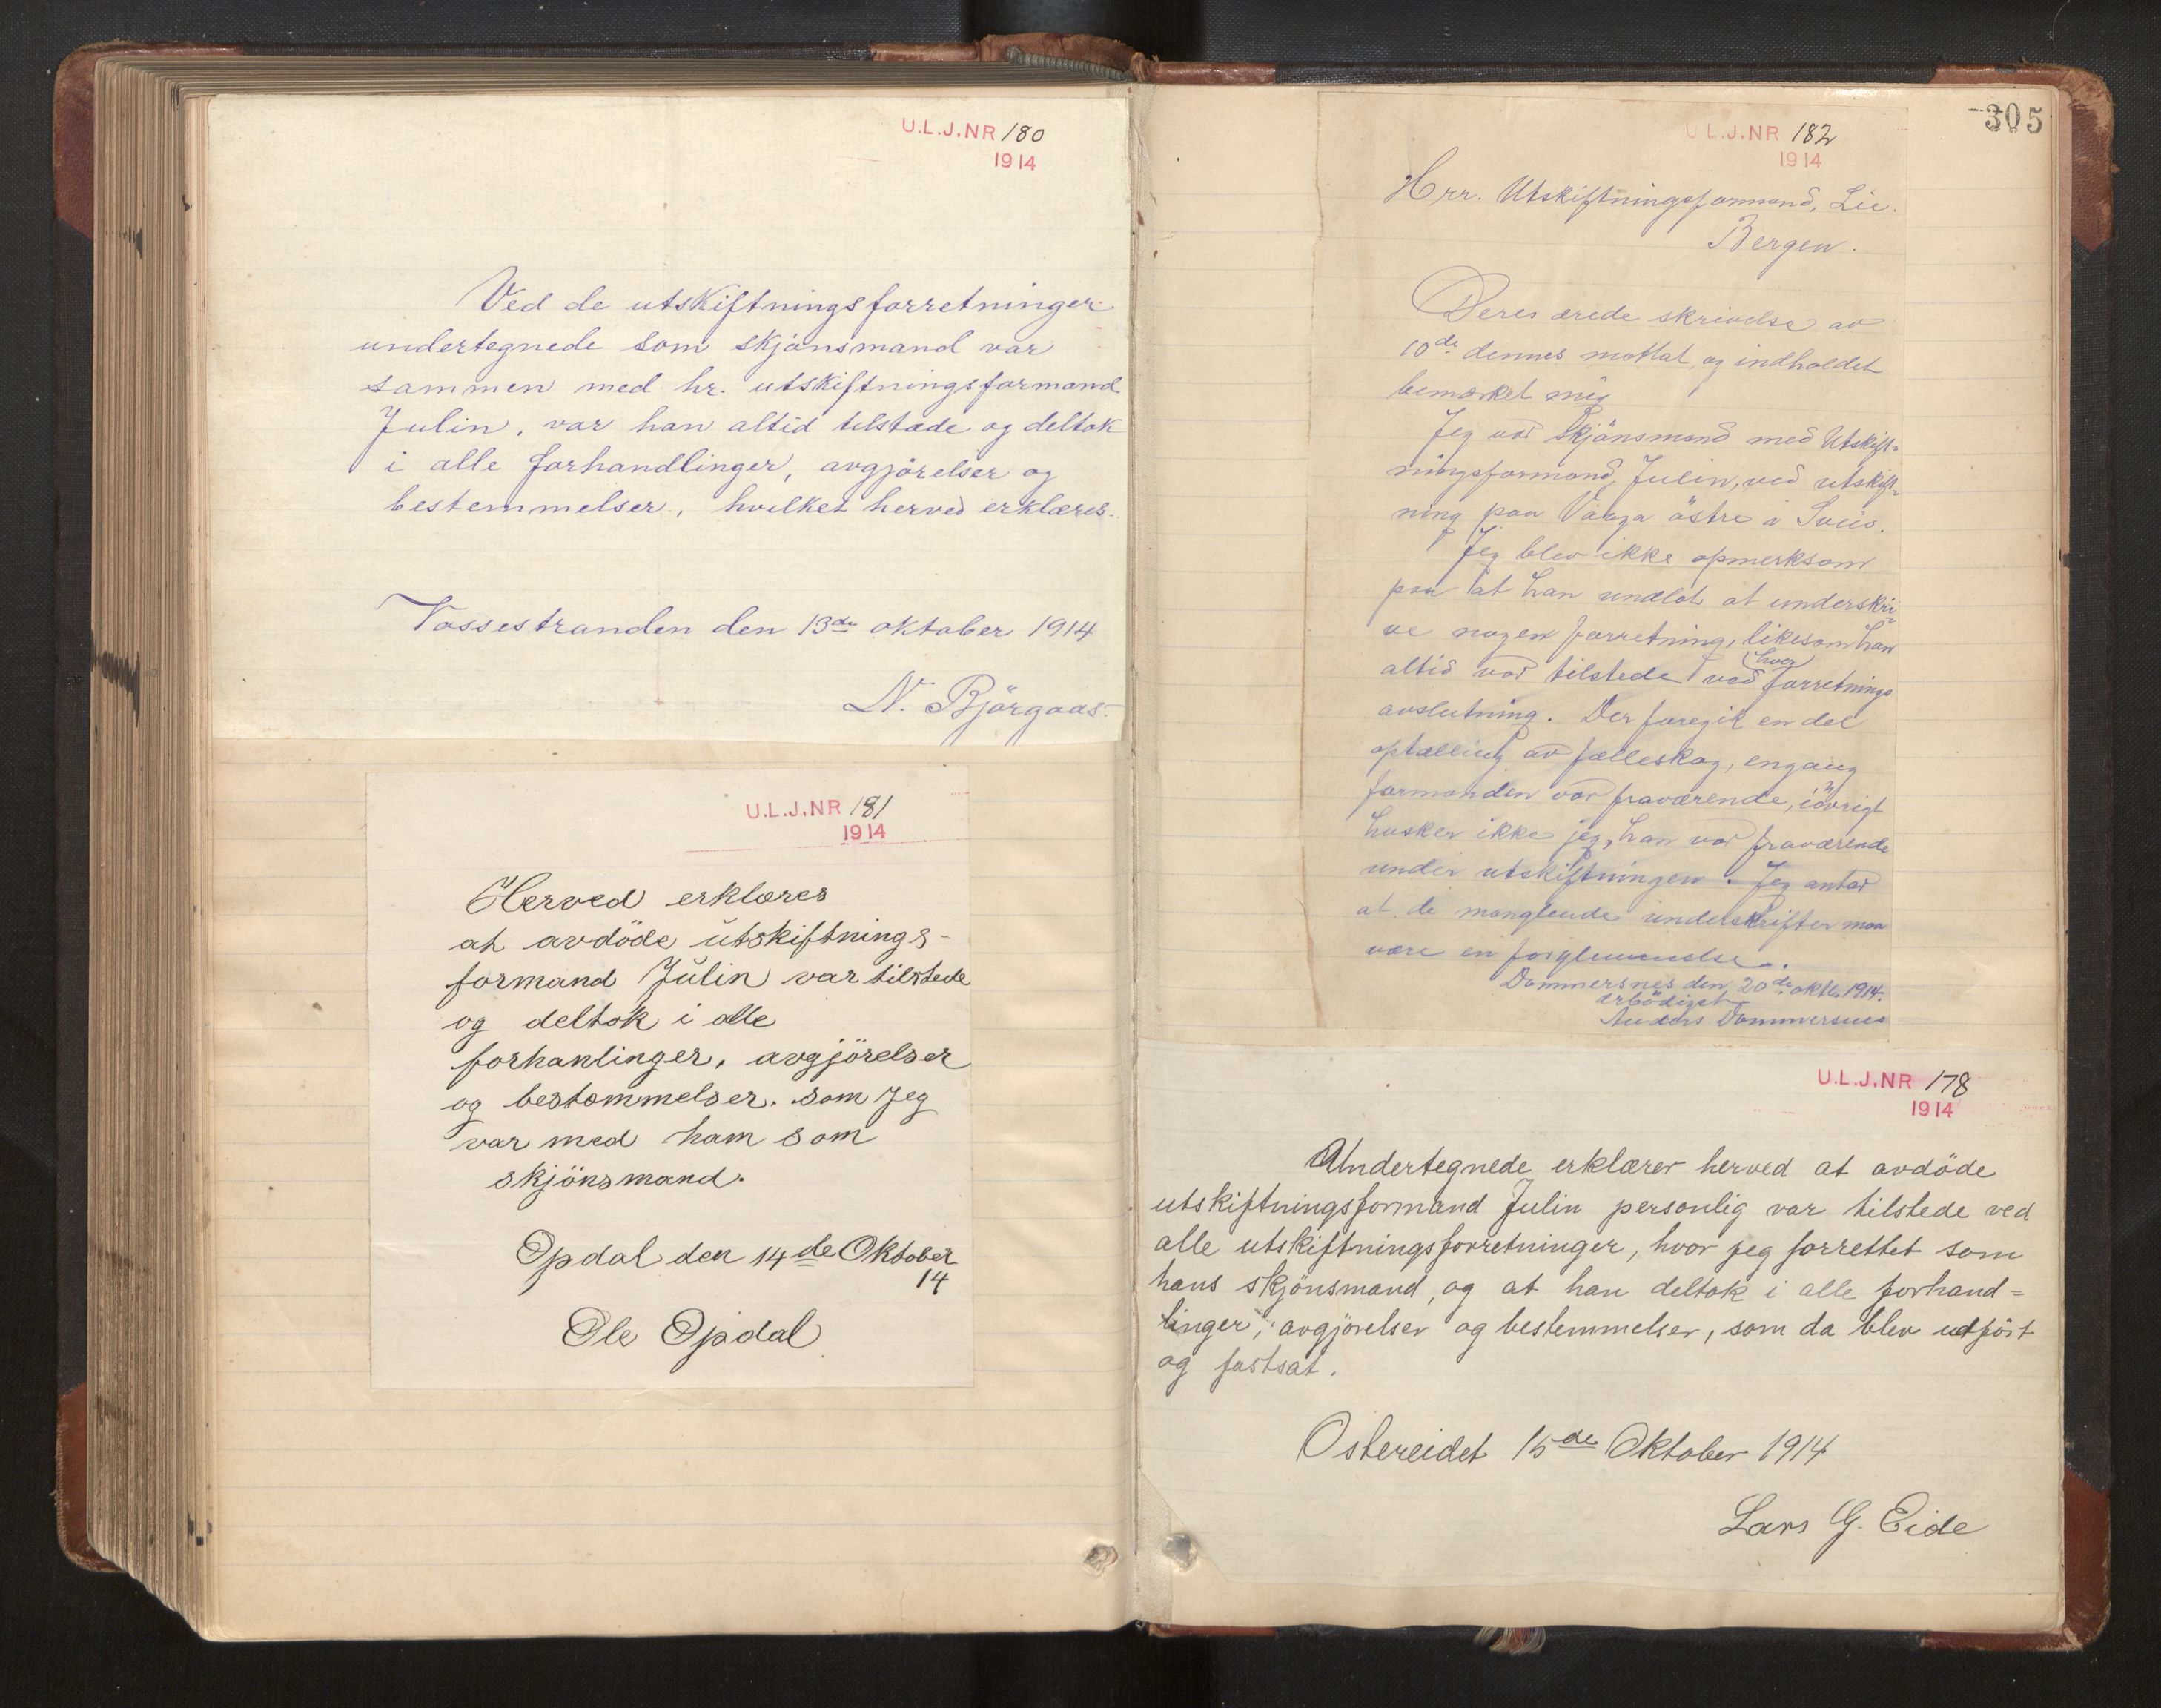 U.L.J.NR 180
1914
Ved de utskiftningsforretninger
undertegnede som skjønsmand var
sammen med hr. utskiftningsformand
Julin, var han altid tilstæde og deltok
i alle forhandlinger, avgjörelser og
bestemmelser, hvilket herved erklæres.
Vossestranden den 13de oktober 1914
N. Björgaas.
U.L.J.NR 181
1914
Herved erklæres
at avdöde utskiftnings-
formand Julin var tilstede
og deltok i alle
forhanlinger, avgjörelser
og bestemmelser. som jeg
var med ham som
skjönsmand.
Opdal den 14de Oktober
14
Ole Opdal
305
U.L.J.NR 182
1914
Hrr. Utskiftningsformand, Lie.
Bergen.
Deres ærede skrivelse av
10de dennes mottat og indholdet
bemærket mig
Jeg var Skjönsmand med Utskift-
ningsformand, Julin, ved utskift-
ning paa østre i
Jeg blev ikke opmerksom
paa at han undlot at underskri-
ve nogen forretning, likesom han
altid var tilstede ved hver forretnings
avslutning. Der foregik en del
optælling av fælleskog, engang
formanden var fraværende, iövrigt
husker ikke jeg, han var fraværende
under utskiftningen. Jeg antar
at de manglende underskrifter maa
være en forglemmelse.
Dommersnes den 20de oktb. 1914.
ærbödigst
Anders Dommersnes
U.L.J.NR 178
1914
Undertegnede erklærer herved at avdöde
utskiftningsformand Julin personlig var tilstede ved
alle utskiftningsforretninger, hvor jeg forrettet som
hans skjönsmand, og at han deltok i alle forhand=
linger, avgjörelser og bestemmelser, som da blev utfört
og fastsat.
Ostereidet 15de Oktober 1914
Lars G. Eide